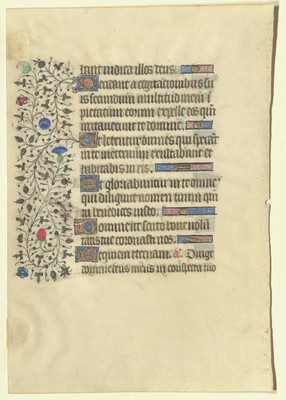 bant iudica illos deus
Decidant a cogitacionibus su
is secundum multitudinem i
pietatum eorum expelle eos qm̄
irritauerunt te domine
Et letentur omnes qui sperant
in te in eternum exultabunt et
habitabis in eis
Et gloriabuntur in te omnes
qui diligunt nomen tuum qm̄
tu benedices iusto
Domine ut scuto bone volū
tatis tue coronasti nos
Requiem eternam. a. Dirige
domine deus meus in conspectu tuo